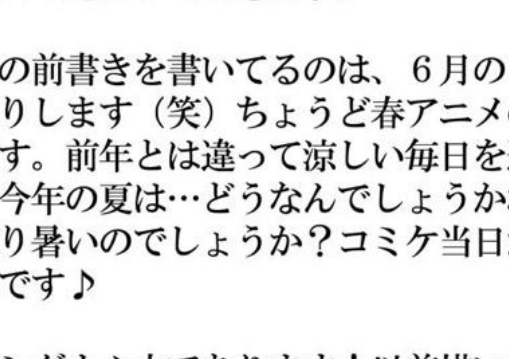 の前書きを書いてるのは、６月の
りします（笑）ちょうど春アニメ
す。前年とは違って涼しい毎日を
今年の夏は…どうなんでしょうか
り暑いのでしょうか？コミケ当日
です♪